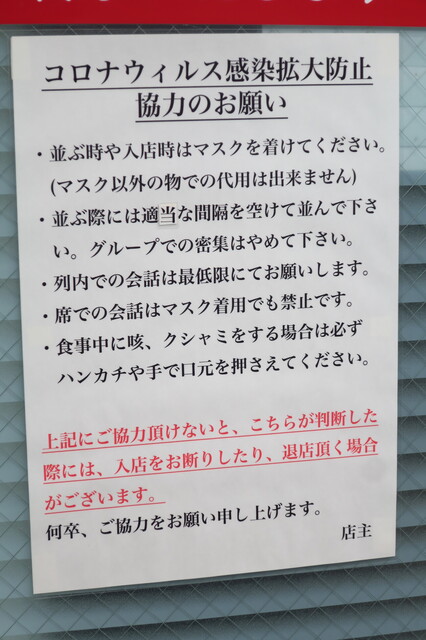 コロナウィルス感染拡大防止
協力のお願い
・並ぶ時や入店時はマスクを着けてください。
(マスク以外の物での代用は出来ません)
・並ぶ際には適当な間隔を空けて並んで下さ
い。グループでの密集はやめて下さい。
・列内での会話は最低限にてお願いします。
・席での会話はマスク着用でも禁止です。
・食事中に咳、クシャミをする場合は必ず
ハンカチや手で口元を押さえてください。
上記にご協力頂けないと、こちらが判断した
際には、入店をお断りしたり、退店頂く場合
がございます。
何卒、ご協力をお願い申し上げます。
店主